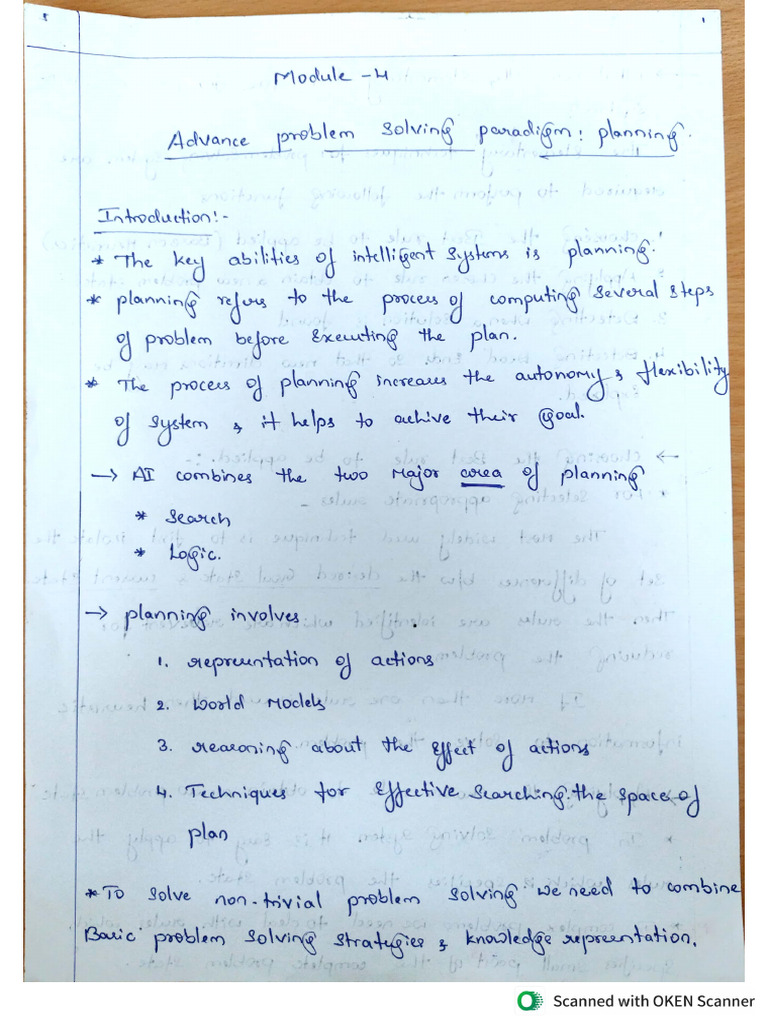 Module - 4
Advance problem solving paradigm: planning.
Introduction:-
* The key abilities of intelligent systems is planning.
* planning refers to the process of computing several steps
of problem before executing the plan.
* The process of planning increases the autonomy & flexibility
of system & it helps to achive their goal.
→ AI combines the two major area of planning
* search
* Logic.
→ planning involves
1. representation of actions
2. World Models
3. reasoning about the effect of actions
4. Techniques for effective searching the space of
plan
* To solve non-trivial problem solving we need to combine
Basic problem solving strategies & knowledge representation.
Scanned with OKEN Scanner